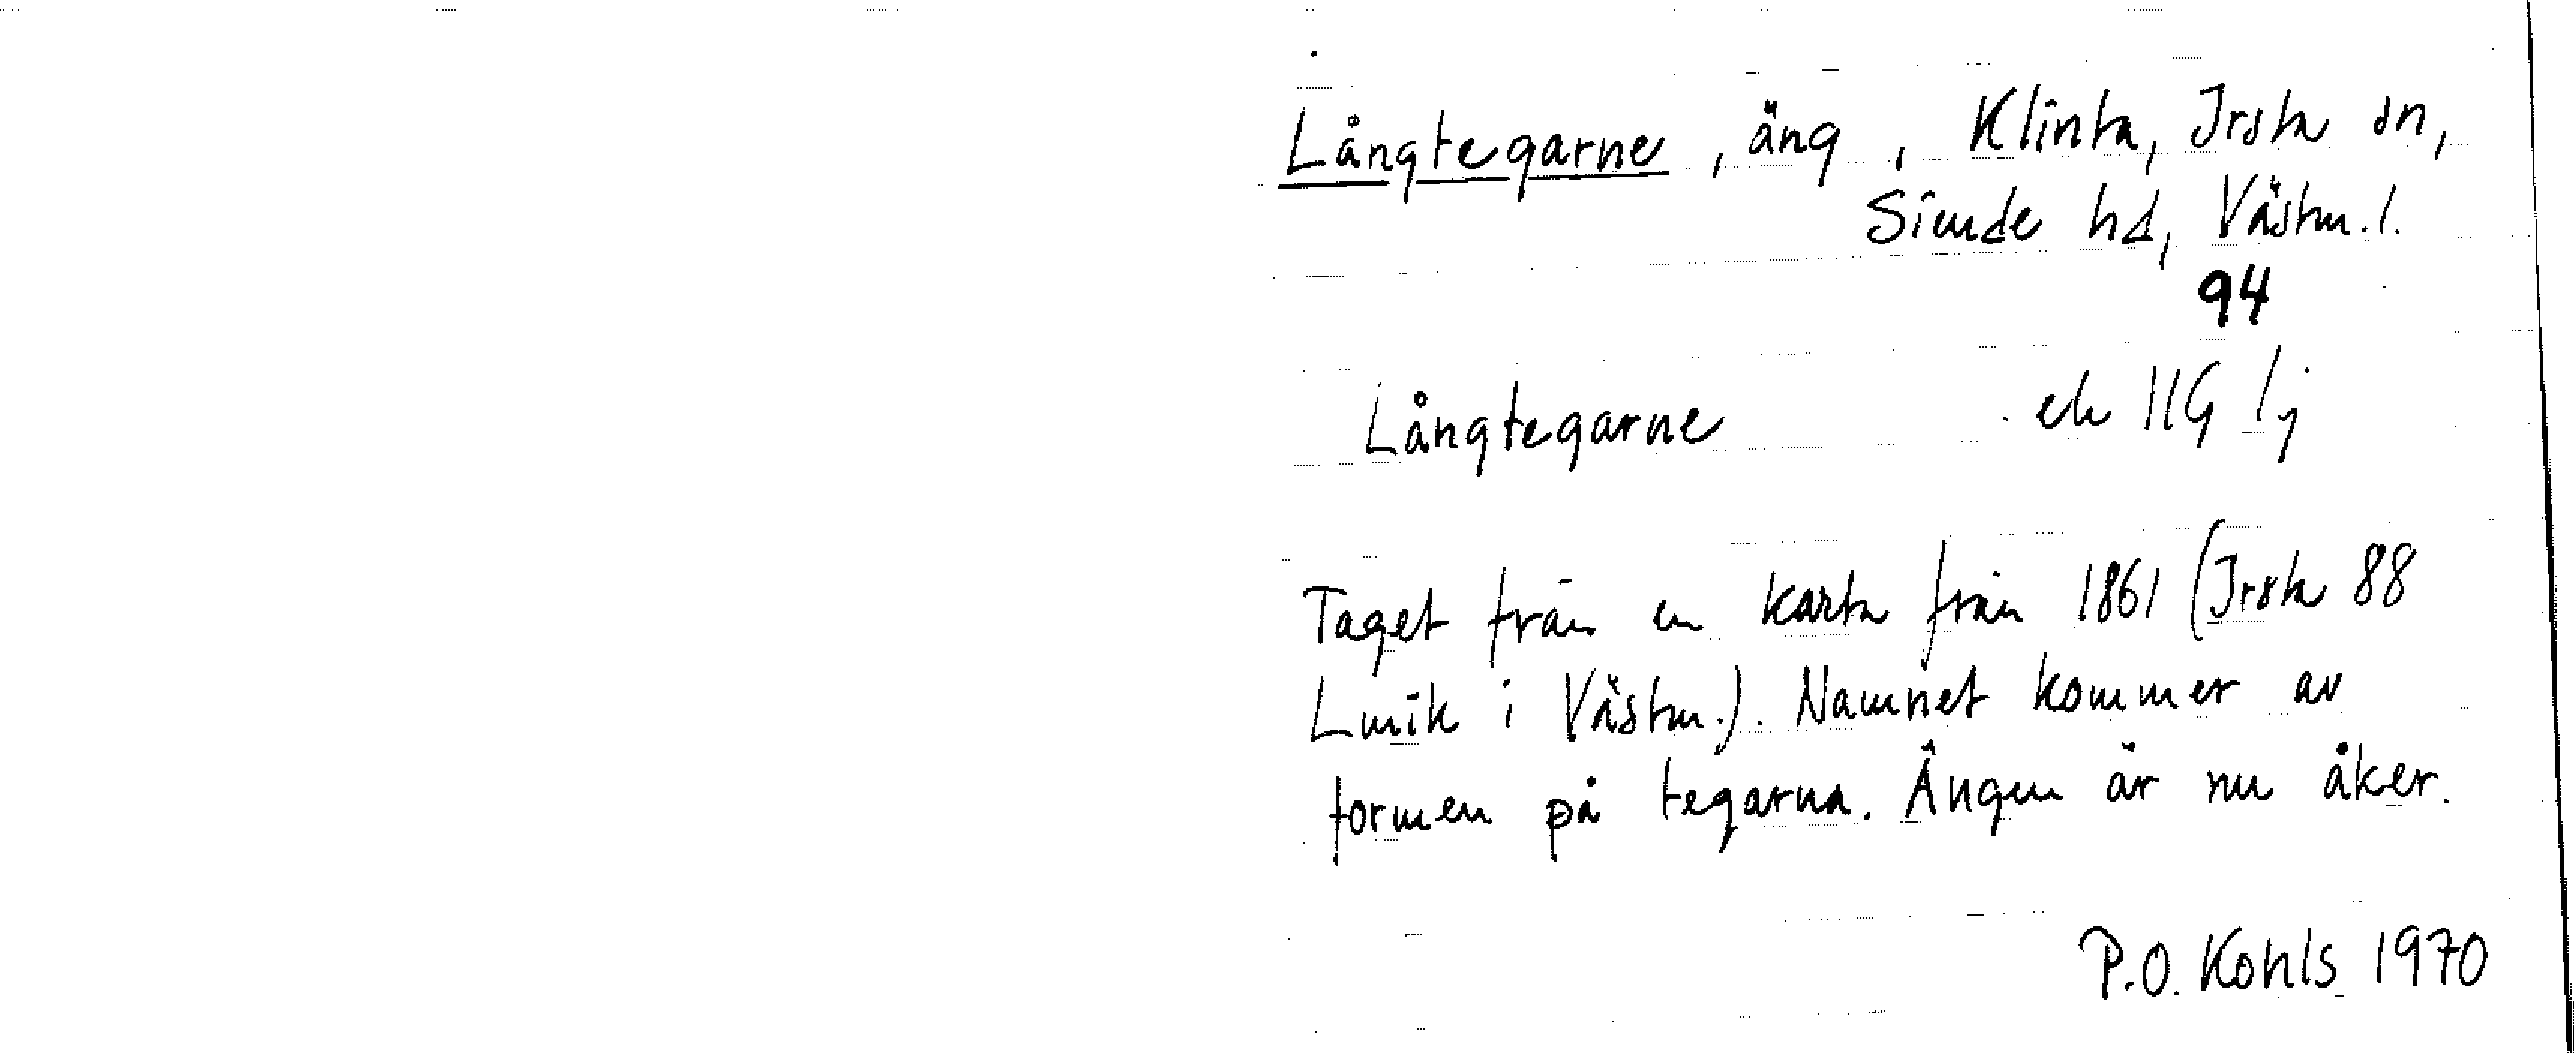 Långtegarne, äng, Klinta, Irsta sn,
Siende hd, Västm.l.
94
Långtegarne ek 11G 1j
Taget från en karta från 1861 (Irsta 88
Lmik i Västm.). Namnet kommer av
formen på tegarna. Ängen är nu åker.
P.O. Kohls 1970